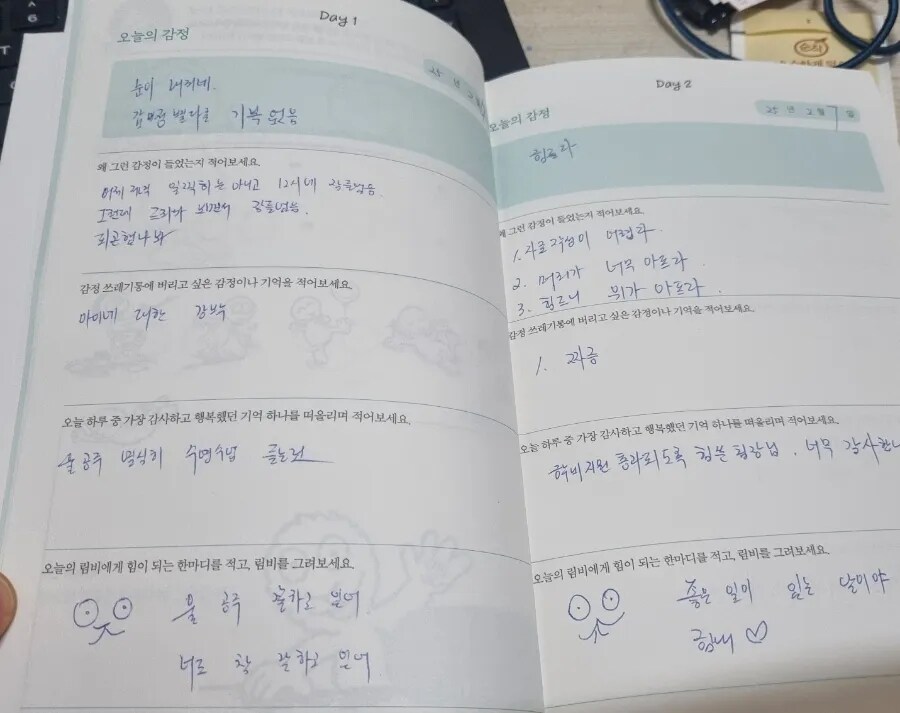 Day 1
오늘의 감정
25 년 2월
눈이 내리네.
감정 별다를 기복 없음
왜 그런 감정이 들었는지 적어보세요.
어제 저녁 일찍히는 아니고 12시에 잠들었음
그런데 코피가 나면서 잠들었음.
피곤했나봐
감정 쓰레기통에 버리고 싶은 감정이나 기억을 적어보세요.
마이네 대한
오늘 하루 중 가장 감사하고 행복했던 기억 하나를 떠올리며 적어보세요.
울 공주 열심히 수면수업
오늘의 림비에게 힘이 되는 한마디를 적고, 림비를 그려보세요.
울 공주 잘하고 있어
너도 참 잘하고 있어
Day 2
25 년 2월 7 일
오늘의 감정
힘드라
왜 그런 감정이 들었는지 적어보세요.
1. 어렵다.
2. 머리가 너무 아프라.
3. 힘드니 뭐가 아프라.
감정 쓰레기통에 버리고 싶은 감정이나 기억을 적어보세요.
1. 짜증
오늘 하루 중 가장 감사하고 행복했던 기억 하나를 떠올리며 적어보세요.
학비지원 통과되도록 힘쓴 팀장님. 너무 감사한
오늘의 림비에게 힘이 되는 한마디를 적고, 림비를 그려보세요.
좋은 일이 있는 날이야
힘내 ♡
순직